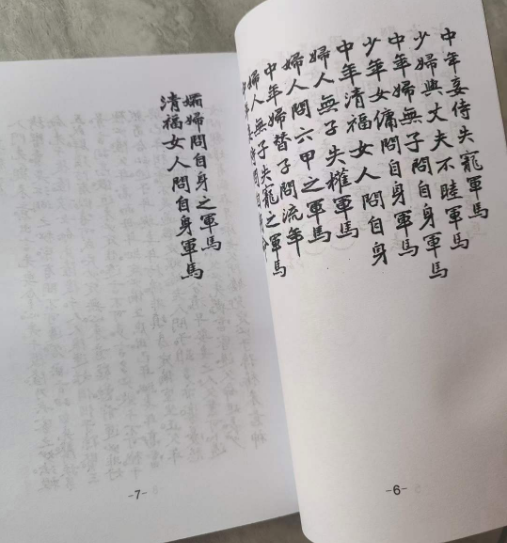 中年妾侍失寵軍馬
少婦與丈夫不睦軍馬
中年婦無子問自身軍馬
少年女傭問自身軍馬
中年清福女人問自身
婦人無子失權軍馬
婦人問六甲之軍馬
中年婦替子問流年
婦人無子失寵之軍馬
-6-
孀婦問自身之軍馬
清福女人問自身軍馬
-7-